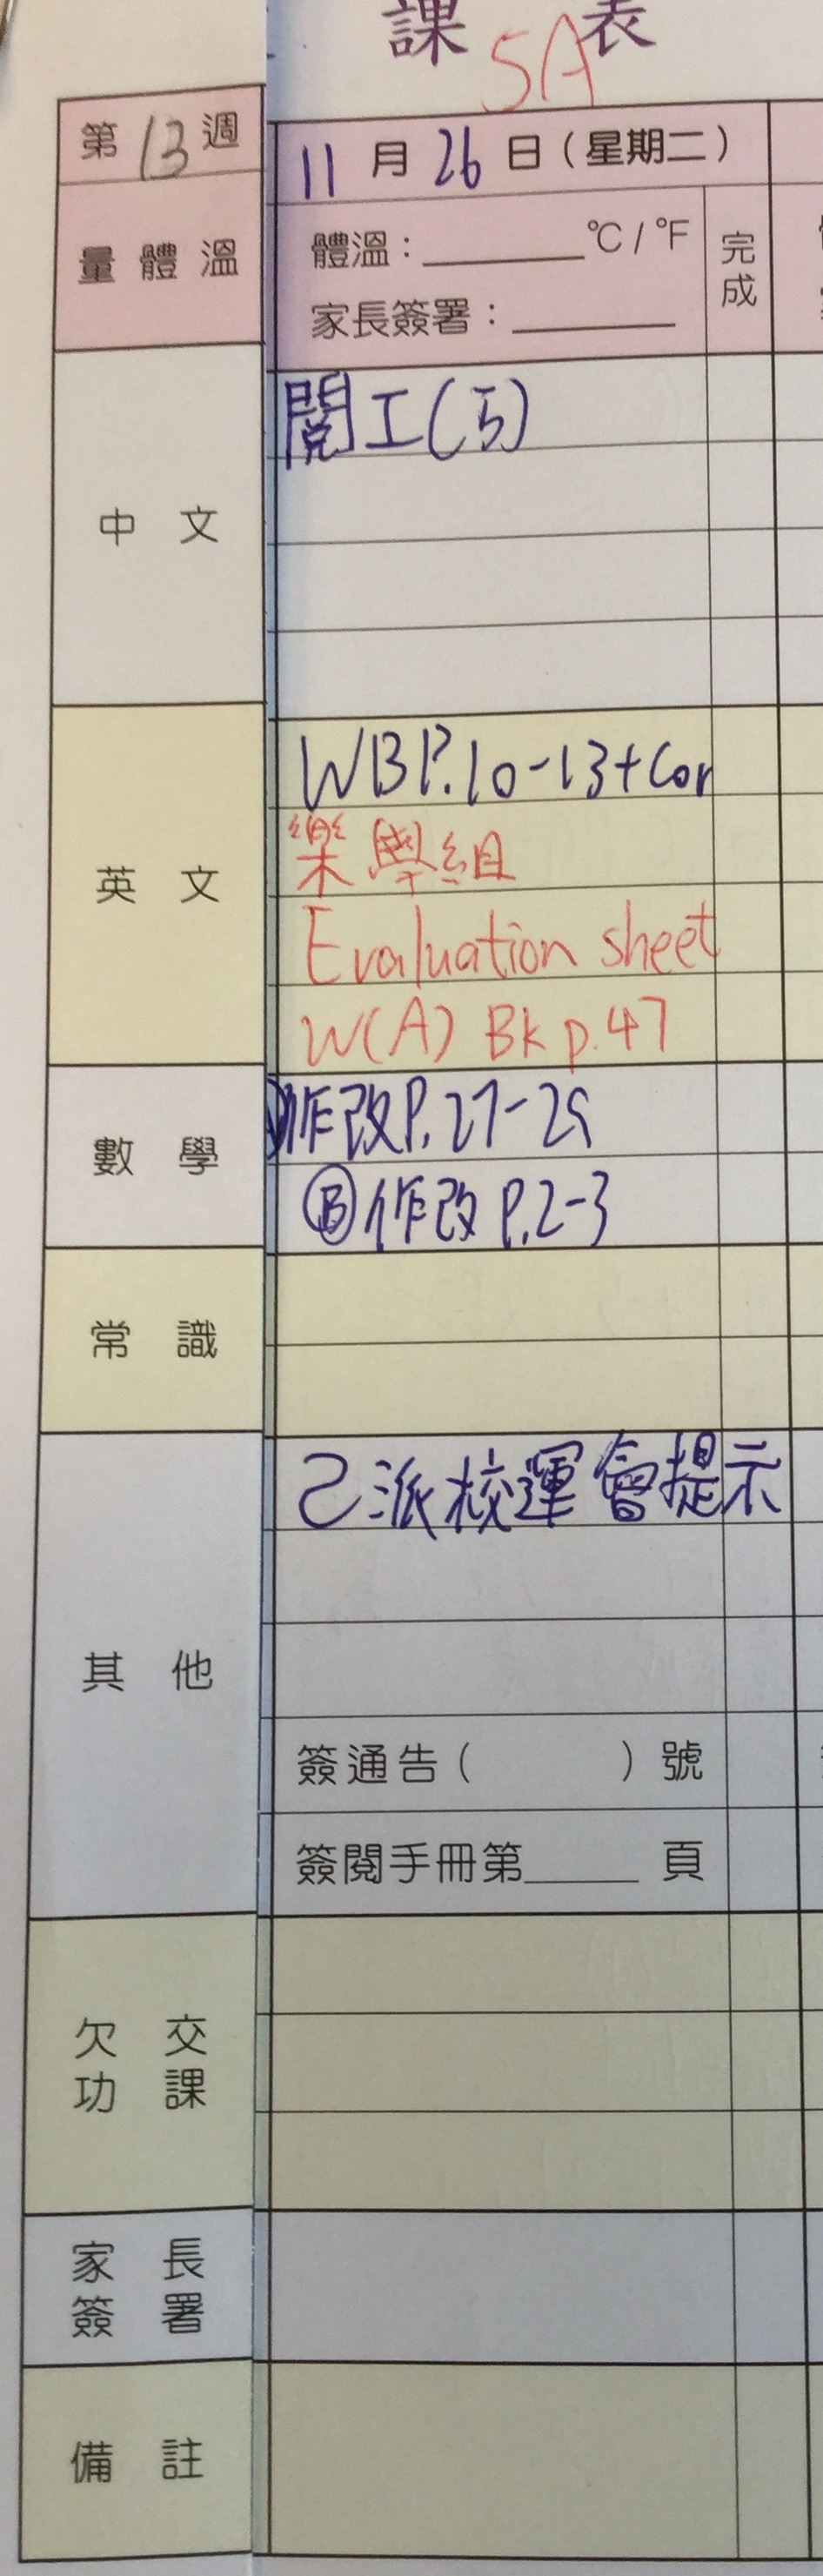 課 表
5A
第 13 週
11 月 26 日 ( 星期二 )
量 體 溫
體溫 : ______ °C / °F
完成
家長簽署 : ______
中 文
閱工(五)
英 文
WB P.10-13+Cor
樂學組
Evaluation sheet
W(A) Bk p.47
數 學
作改P.27-29
Ⓑ作改 P.2-3
常 識
其 他
己派校運會提示
簽通告 ( ) 號
簽閱手冊第____ 頁
欠 交
功 課
家 長
簽 署
備 註